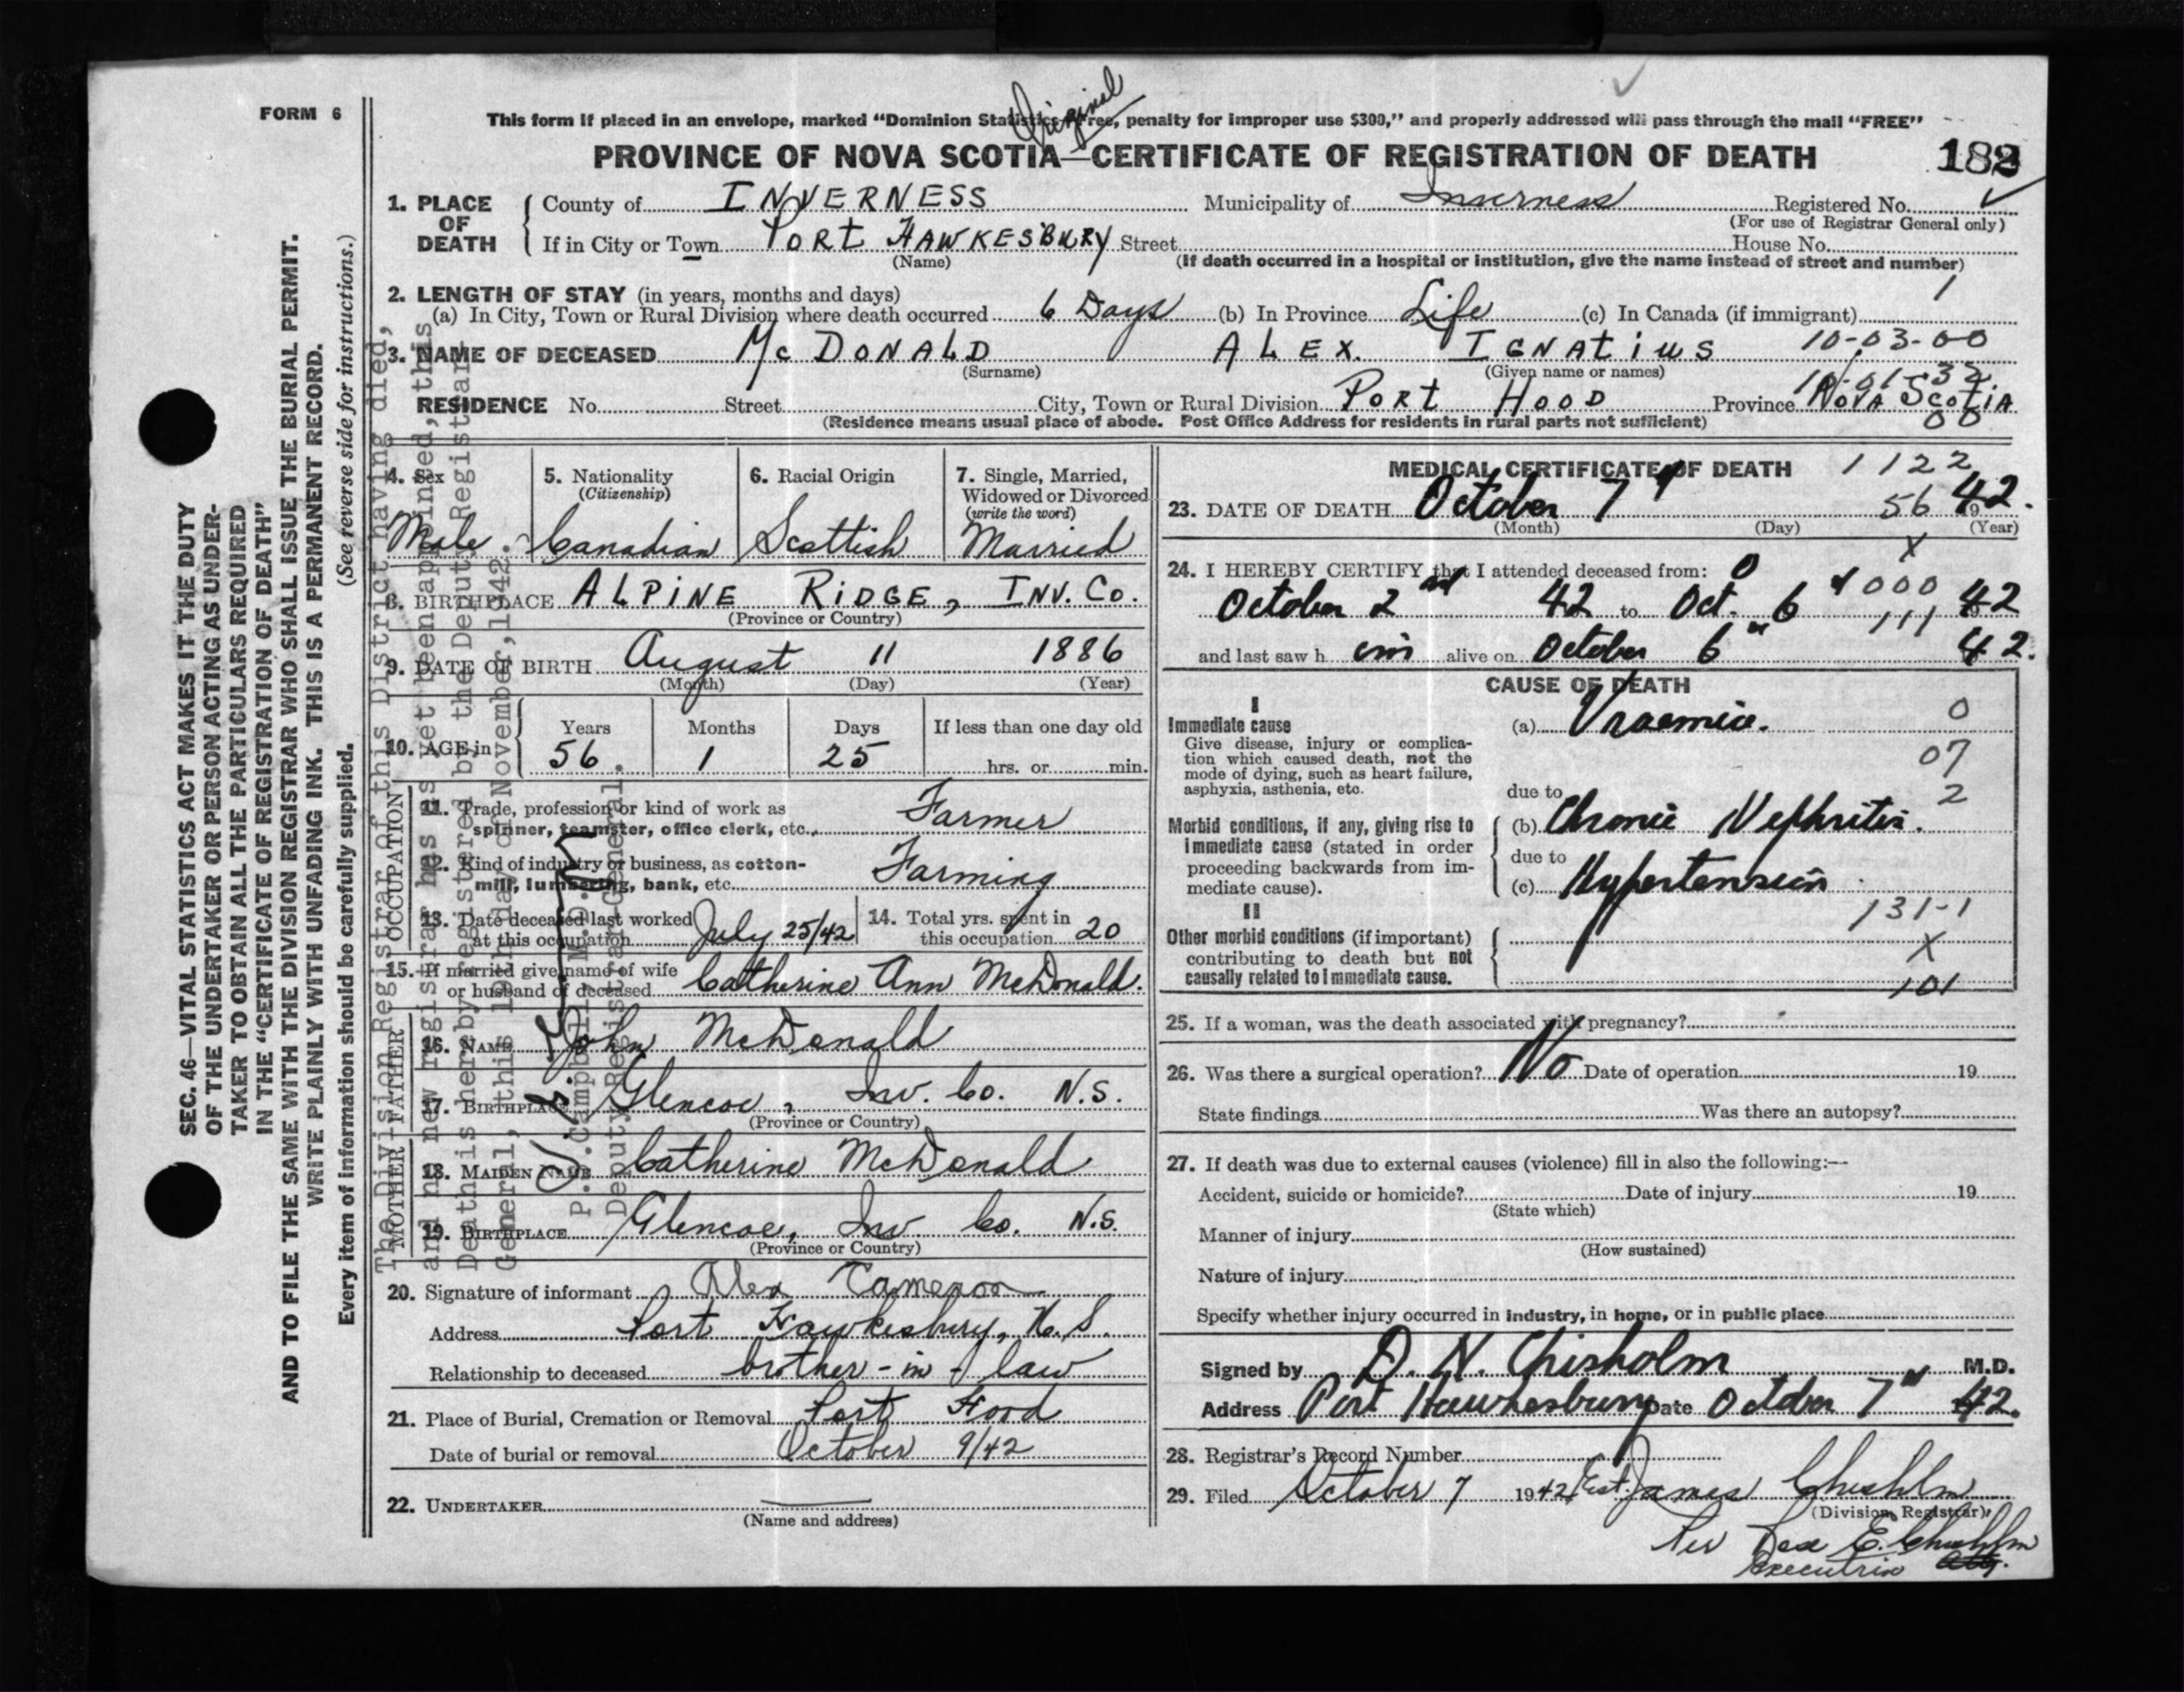 FORM 6
Original
This form if placed in an envelope, marked "Dominion Statistics—Free, penalty for improper use $300," and properly addressed will pass through the mail "FREE"
PROVINCE OF NOVA SCOTIA—CERTIFICATE OF REGISTRATION OF DEATH
182
1. PLACE OF DEATH
County of INVERNESS Municipality of Inverness Registered No.
(For use of Registrar General only)
If in City or Town PORT HAWKESBURY Street House No.
(Name) (If death occurred in a hospital or institution, give the name instead of street and number)
2. LENGTH OF STAY (in years, months and days) 1
(a) In City, Town or Rural Division where death occurred 6 Days (b) In Province Life (c) In Canada (if immigrant)
3. NAME OF DECEASED McDONALD ALEX. IGNATIUS 10-03-00
(Surname) (Given name or names)
RESIDENCE No. Street City, Town or Rural Division PORT HOOD Province NOVA SCOTIA
(Residence means usual place of abode. Post Office Address for residents in rural parts not sufficient) 00
4. Sex 5. Nationality (Citizenship) 6. Racial Origin 7. Single, Married, Widowed or Divorced (write the word)
Male Canadian Scottish Married
8. BIRTHPLACE ALPINE RIDGE, INV. CO.
(Province or Country)
9. DATE OF BIRTH August 11 1886
(Month) (Day) (Year)
10. AGE in Years Months Days If less than one day old
56. 1 25 hrs. or min.
OCCUPATION
11. Trade, profession or kind of work as spinner, teamster, office clerk, etc., Farmer
12. Kind of industry or business, as cotton-mill, lumbering, bank, etc. Farming
13. Date deceased last worked at this occupation July 25/42 14. Total yrs. spent in this occupation 20
15. If married give name of wife or husband of deceased Catherine Ann McDonald.
FATHER
16. NAME John McDonald
17. BIRTHPLACE Glencoe, Inv. Co. N.S.
(Province or Country)
MOTHER
18. MAIDEN NAME Catherine McDonald
19. BIRTHPLACE Glencoe, Inv. Co. N.S.
(Province or Country)
20. Signature of informant Alex Cameron
Address Port Hawkesbury, N.S.
Relationship to deceased brother-in-law
21. Place of Burial, Cremation or Removal Port Hood
Date of burial or removal October 9/42
22. UNDERTAKER
(Name and address)
MEDICAL CERTIFICATE OF DEATH 1122
23. DATE OF DEATH October 7 56 1942.
(Month) (Day) (Year)
24. I HEREBY CERTIFY that I attended deceased from:
October 2nd 42 to Oct. 6 1942
and last saw him alive on October 6 42.
CAUSE OF DEATH
I
Immediate cause (a) Uraemia. 0
Give disease, injury or complication which caused death, not the mode of dying, such as heart failure, asphyxia, asthenia, etc. 07
due to 2
Morbid conditions, if any, giving rise to immediate cause (stated in order proceeding backwards from immediate cause).
(b) Chronic Nephritis.
due to
(c) Hypertension
II 131-1
Other morbid conditions (if important) contributing to death but not causally related to immediate cause. X
101
25. If a woman, was the death associated with pregnancy?
26. Was there a surgical operation? No Date of operation 19
State findings Was there an autopsy?
27. If death was due to external causes (violence) fill in also the following:—
Accident, suicide or homicide? Date of injury 19
(State which)
Manner of injury
(How sustained)
Nature of injury
Specify whether injury occurred in industry, in home, or in public place
Signed by D. N. Chisholm M.D.
Address Port Hawkesbury Date October 7 1942.
28. Registrar's Record Number
29. Filed October 7 1942 Est. James Chisholm
(Division Registrar)
Per E. Chisholm
Executrix
SEC. 46—VITAL STATISTICS ACT MAKES IT THE DUTY
OF THE UNDERTAKER OR PERSON ACTING AS UNDER-
TAKER TO OBTAIN ALL THE PARTICULARS REQUIRED
IN THE "CERTIFICATE OF REGISTRATION OF DEATH"
AND TO FILE THE SAME WITH THE DIVISION REGISTRAR WHO SHALL ISSUE THE BURIAL PERMIT.
WRITE PLAINLY WITH UNFADING INK. THIS IS A PERMANENT RECORD.
Every item of information should be carefully supplied. (See reverse side for instructions.)
The Division Registrar of this District having died,
and new registrar has as yet been appointed, this
Death is hereby registered by the Deputy Registrar
General, this day of November, 1942.
P.S. Campbell, M.D.
Deputy Registrar General